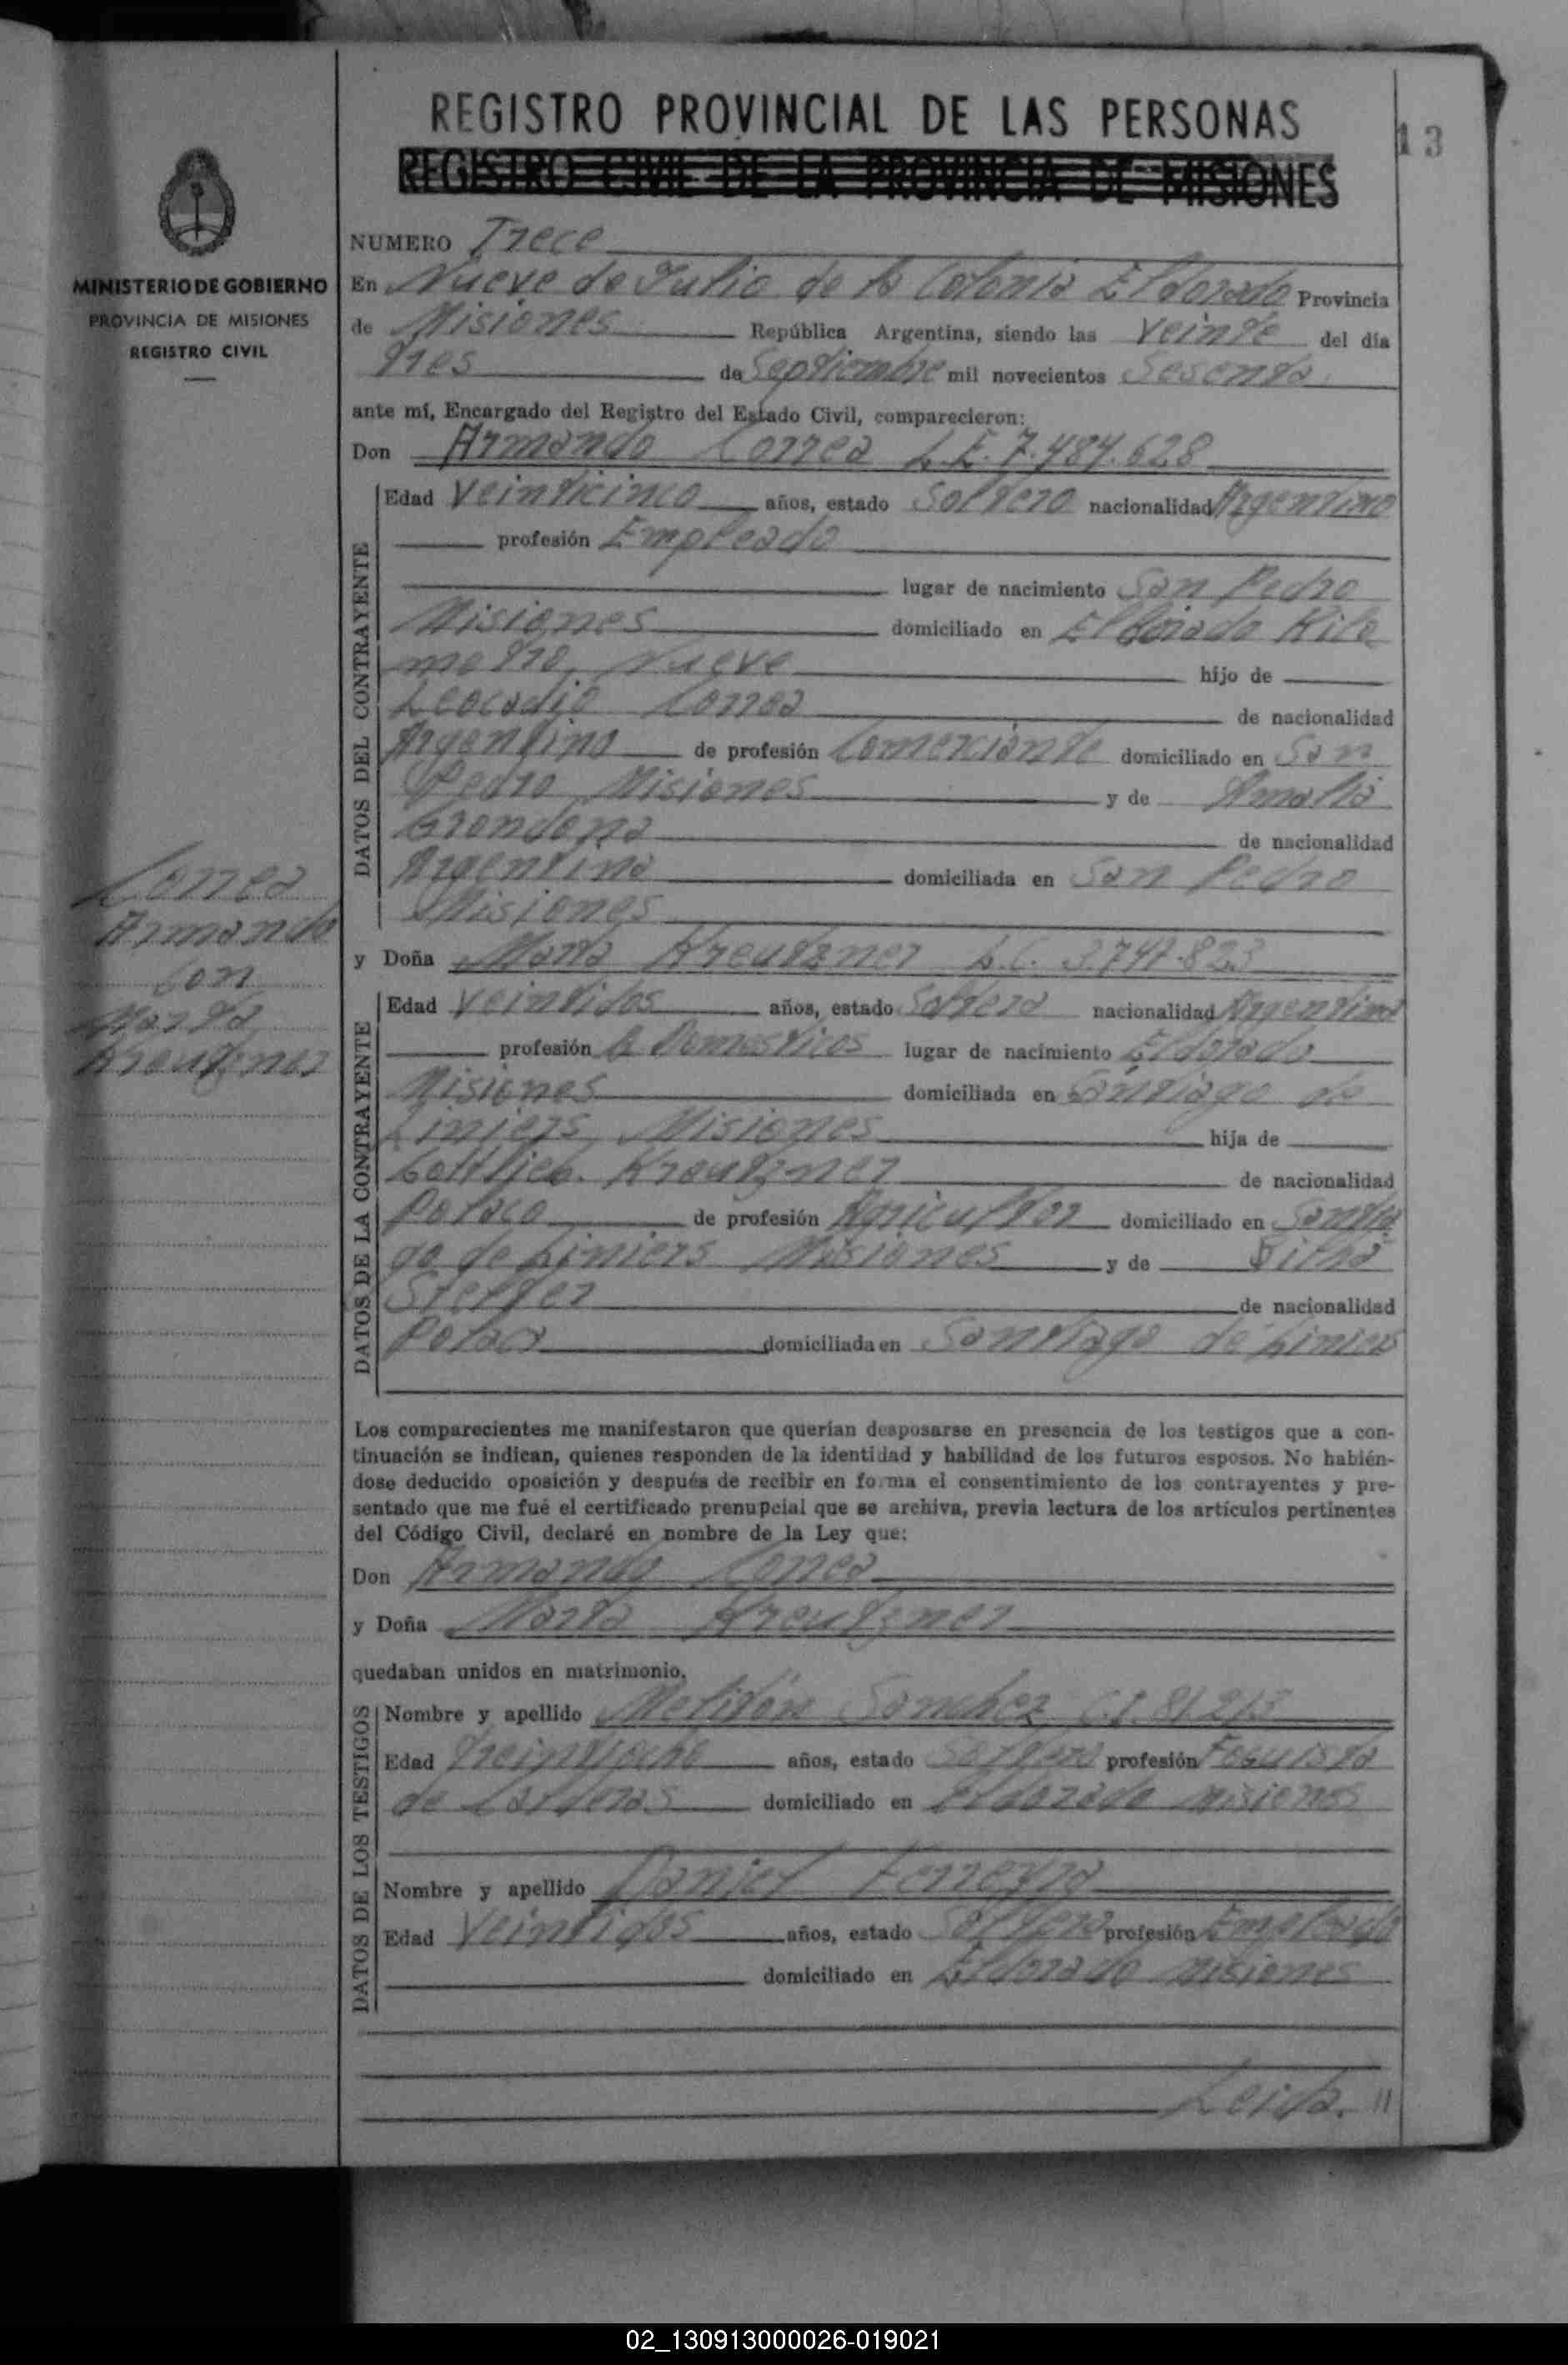 REGISTRO PROVINCIAL DE LAS PERSONAS
13
REGISTRO CIVIL DE LA PROVINCIA DE MISIONES
MINISTERIO DE GOBIERNO
PROVINCIA DE MISIONES
REGISTRO CIVIL
Correa
Armando
con
Marta
Kreutzner
NUMERO Trece
En Nueve de Julio de la Colonia Eldorado Provincia
de Misiones República Argentina, siendo las veinte del día
tres de Septiembre mil novecientos Sesenta
ante mí, Encargado del Registro del Estado Civil, comparecieron:
Don Armando Correa L.E. 7.484.628
DATOS DEL CONTRAYENTE
Edad veinticinco años, estado Soltero nacionalidad Argentino
profesión Empleado
lugar de nacimiento San Pedro
Misiones domiciliado en Eldorado Kilo
metro, Nueve hijo de
Leocadio Correa de nacionalidad
Argentino de profesión Comerciante domiciliado en San
Pedro Misiones y de Amalia
Grondona de nacionalidad
Argentina domiciliada en San Pedro
Misiones
y Doña Marta Kreutzner L.C. 3.747.823
DATOS DE LA CONTRAYENTE
Edad veintidos años, estado Soltera nacionalidad Argentina
profesión Q. Domesticos lugar de nacimiento Eldorado
Misiones domiciliada en Santiago de
Liniers, Misiones hija de
Gottlieb. Kreutzner de nacionalidad
Polaco de profesión Agricultor domiciliado en Santia
go de Liniers Misiones y de
de nacionalidad
Polaca domiciliada en Santiago de Liniers
Los comparecientes me manifestaron que querían desposarse en presencia de los testigos que a con-
tinuación se indican, quienes responden de la identidad y habilidad de los futuros esposos. No habién-
dose deducido oposición y después de recibir en forma el consentimiento de los contrayentes y pre-
sentado que me fué el certificado prenupcial que se archiva, previa lectura de los artículos pertinentes
del Código Civil, declaré en nombre de la Ley que:
Don Armando Correa
y Doña Marta Kreutzner
quedaban unidos en matrimonio.
DATOS DE LOS TESTIGOS
Nombre y apellido Melitón Sanchez C.I. 81213
Edad treintiocho años, estado Soltero profesión Foguista
de Calderas domiciliado en Eldorado Misiones
Nombre y apellido Daniel Ferreyra
Edad Veintidos años, estado Soltero profesión Empleado
domiciliado en Eldorado Misiones
Leida. //
02_130913000026-019021